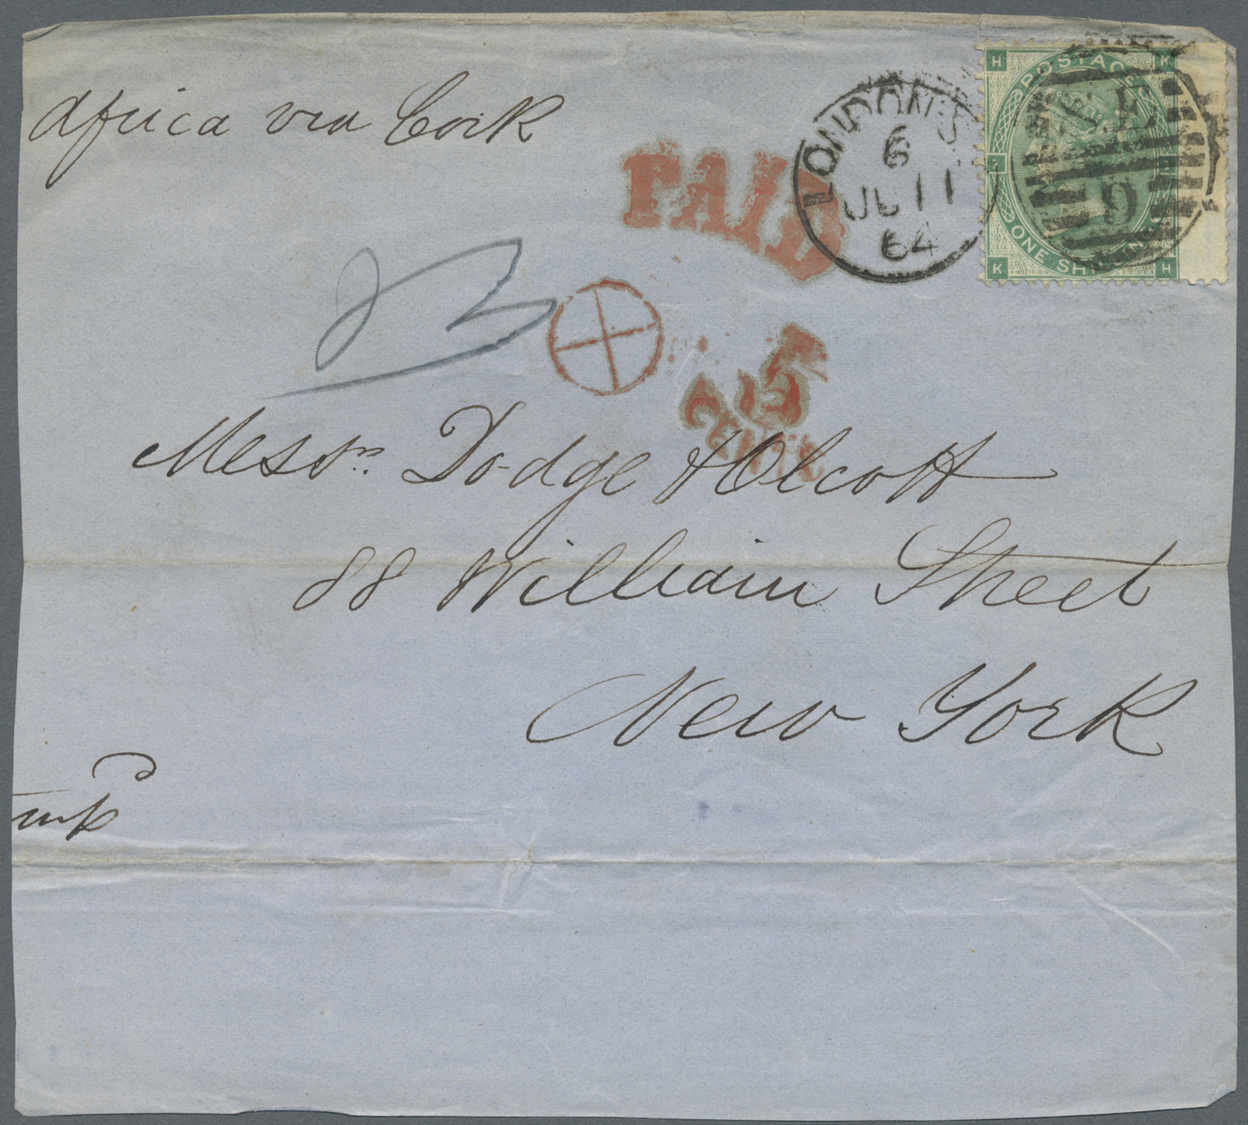 Africa via Cork
PAID
LONDON·S
6
JU 11
64
H K
POSTAGE
ONE SHILLING
K H
9
5
CENTS
Messrs Dodge & Olcott
88 William Street
New York